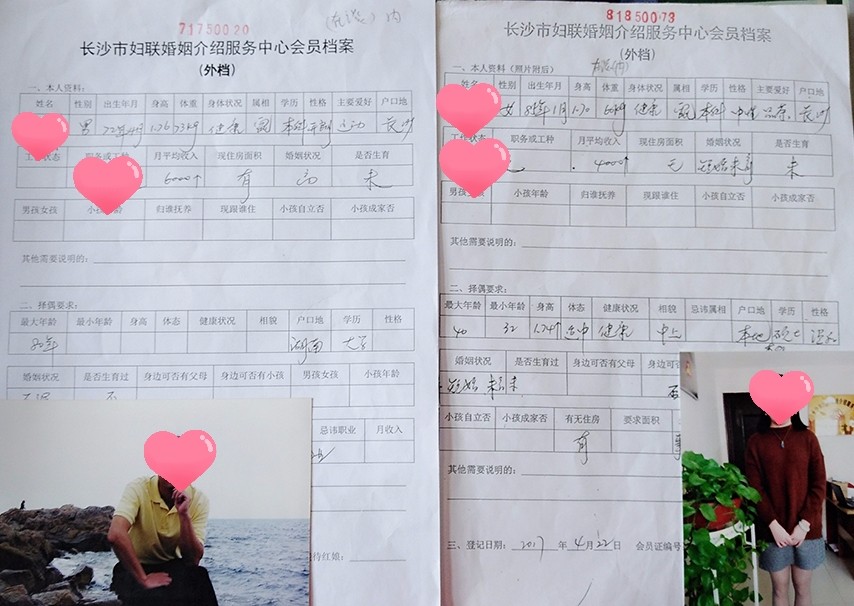 71750020
长沙市妇联婚姻介绍服务中心会员档案
(外档)
一、本人资料:
姓名 性别 出生年月 身高 体重 身体状况 属相 学历 性格 主要爱好 户口地
男 72年4月 1.76 73kg 健康 本科 开朗 运动 长沙
工作状态 职务或工种 月平均收入 现住房面积 婚姻状况 是否生育
6000↑ 有 未
男孩女孩 小孩年龄 归谁抚养 现跟谁住 小孩自立否 小孩成家否
其他需要说明的:
二、择偶要求:
最大年龄 最小年龄 身高 体态 健康状况 相貌 户口地 学历 性格
80年 湖南 大学
婚姻状况 是否生育过 身边可否有父母 身边可否有小孩 男孩女孩 小孩年龄
否
忌讳职业 月收入
待红娘:
81850073
长沙市妇联婚姻介绍服务中心会员档案
(外档)
一、本人资料(照片附后)
姓名 性别 出生年月 身高 体重 身体状况 属相 学历 性格 主要爱好 户口地
女 1月 1.70 60kg 健康 本科 中性 长沙
工作状态 职务或工种 月平均收入 现住房面积 婚姻状况 是否生育
4000↑ 无 短婚未育 未
男孩女孩 小孩年龄 归谁抚养 现跟谁住 小孩自立否 小孩成家否
其他需要说明的:
二、择偶要求:
最大年龄 最小年龄 身高 体态 健康状况 相貌 忌讳属相 户口地 学历 性格
40 32 1.74↑ 适中 健康 中上 本地 硕士 温和
婚姻状况 是否生育过 身边可否有父母
短婚 未 否
小孩自立否 小孩成家否 有无住房 要求面积
有
其他需要说明的:
三、登记日期: 2017 年 4 月 22 日 会员证编号